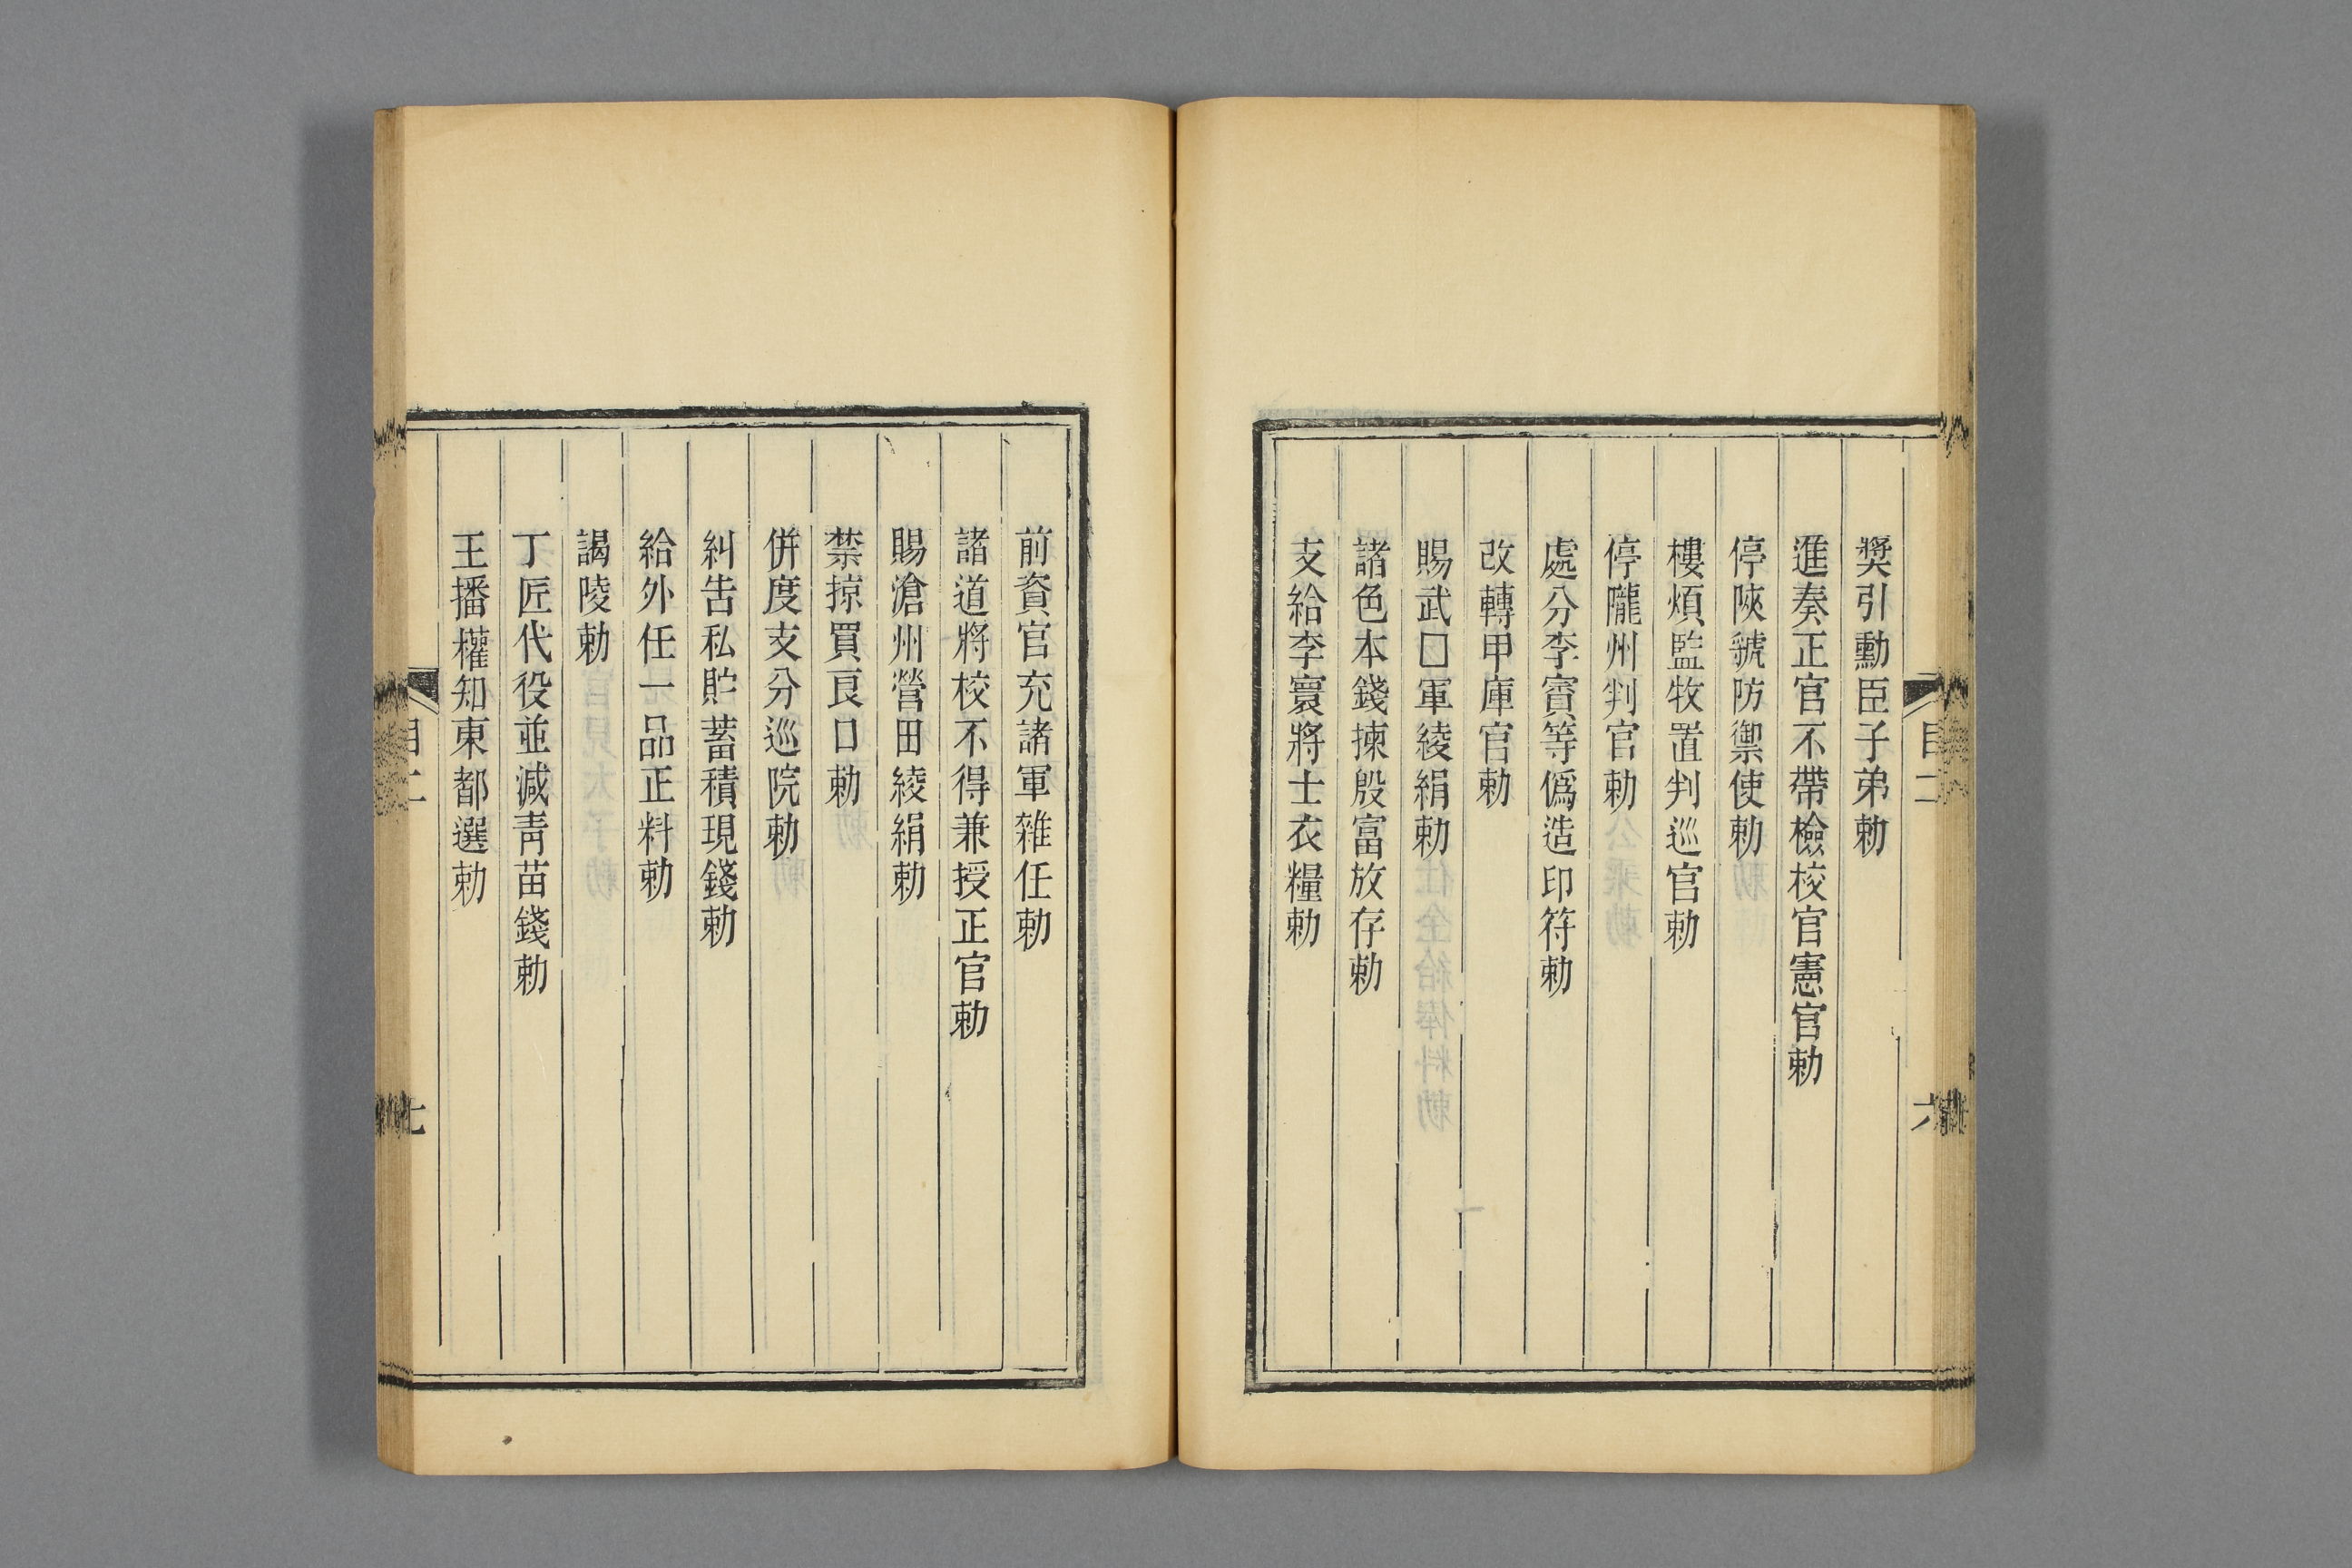 獎引勳臣子弟勅
進奏正官不帶檢校官憲官勅
停陝虢防禦使勅
樓煩監牧置判巡官勅
停隴州判官勅
處分李賓等僞造印符勅
改轉甲庫官勅
賜武□軍綾絹勅
諸色本錢揀殷富放存勅
支給李寰將士衣糧勅
前資官充諸軍雜任勅
諸道將校不得兼授正官勅
賜滄州營田綾絹勅
禁掠買良口勅
併度支分巡院勅
糾告私貯蓄積現錢勅
給外任一品正料勅
謁陵勅
丁匠代役並減靑苗錢勅
王播權知東都選勅
目二
七